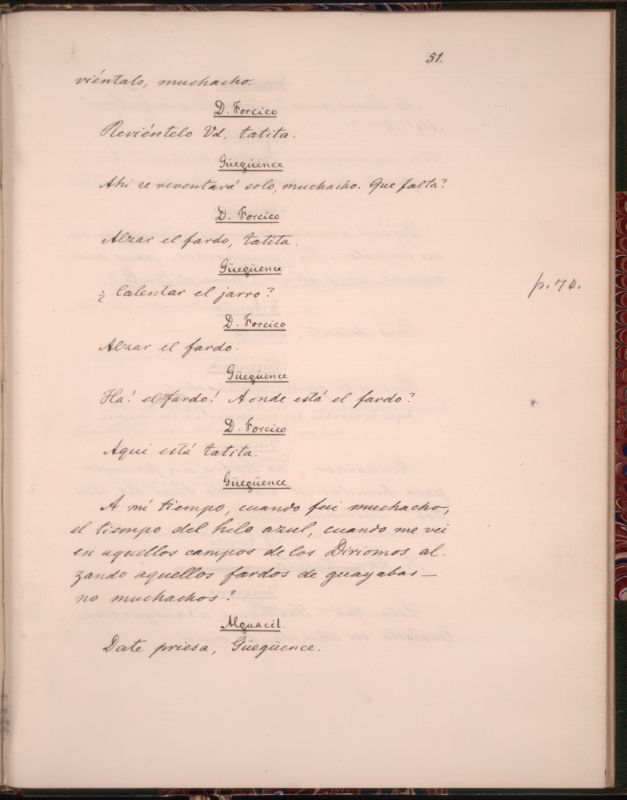 51.
viéntalo, muchacho.
D. Forcico
Reviéntelo Vd, tatita.
Güegüence
Ahi se reventará solo, muchacho. Que falta?
D. Forcico
Alzar el fardo, tatita.
Güegüence
¿Calentar el jarro?
p. 70.
D. Forcico
Alzar el fardo.
Güegüence
Ha! el fardo! Aonde está el fardo?
*
D. Forcico
Aqui está tatita.
Güegüence
A mi tiempo, cuando fui muchacho,
el tiempo del hilo azul, cuando me vei
en aquellos campos de los Diriomos al-
zando aquellos fardos de guayabas —
no muchachos?
Alguacil.
Date priesa, Güegüence.